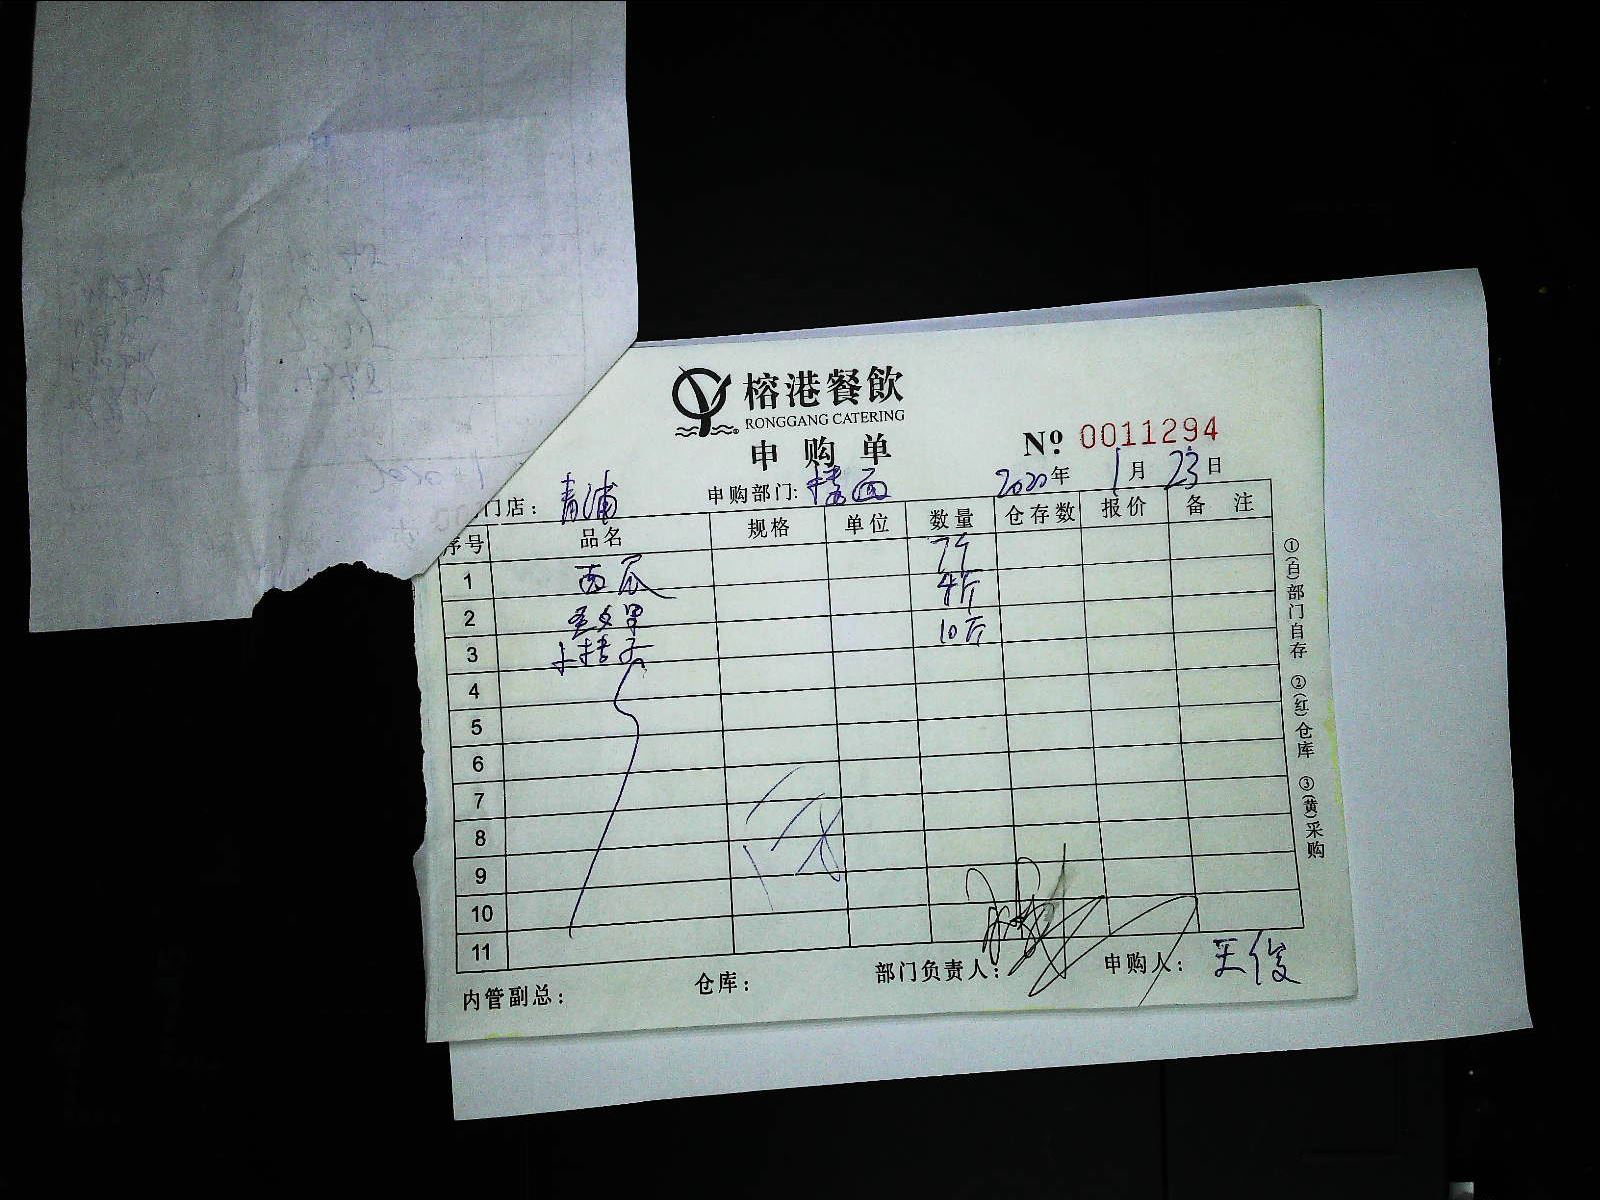 榕港餐飲
RONGGANG CATERING
申购单
Nº 0011294
门店：青浦 申购部门：楼面 2020年1月23日
序号 品名 规格 单位 数量 仓存数 报价 备注
1 西瓜 7斤
2 圣女果 4斤
3 小桔子 10斤
4
5
6
7
8
9
10
11
内管副总： 仓库： 部门负责人： 申购人：王俊
①(白)部门自存 ②(红)仓库 ③(黄)采购